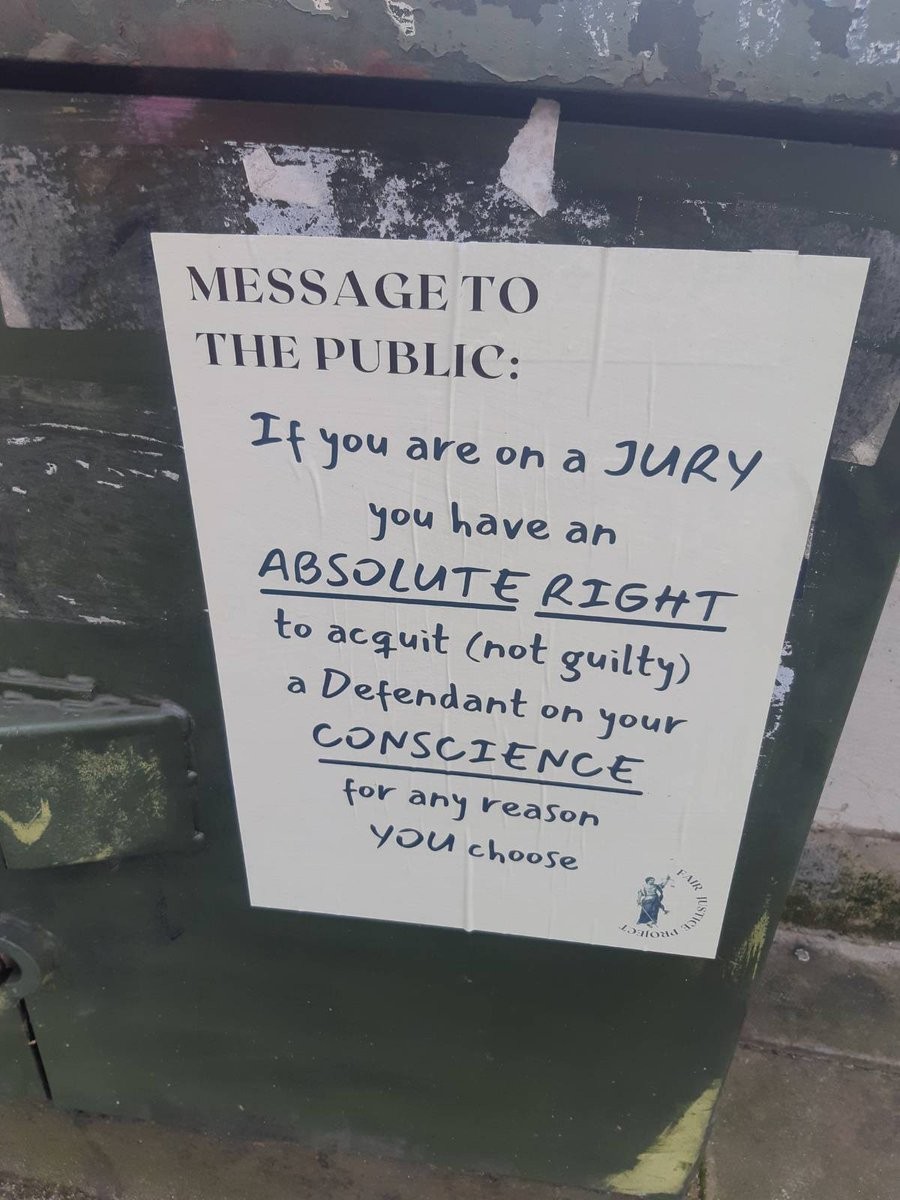 MESSAGE TO
THE PUBLIC:
If you are on a JURY
you have an
ABSOLUTE RIGHT
to acquit (not guilty)
a Defendant on your
CONSCIENCE
for any reason
YOU choose
FAIR JUSTICE PROJECT